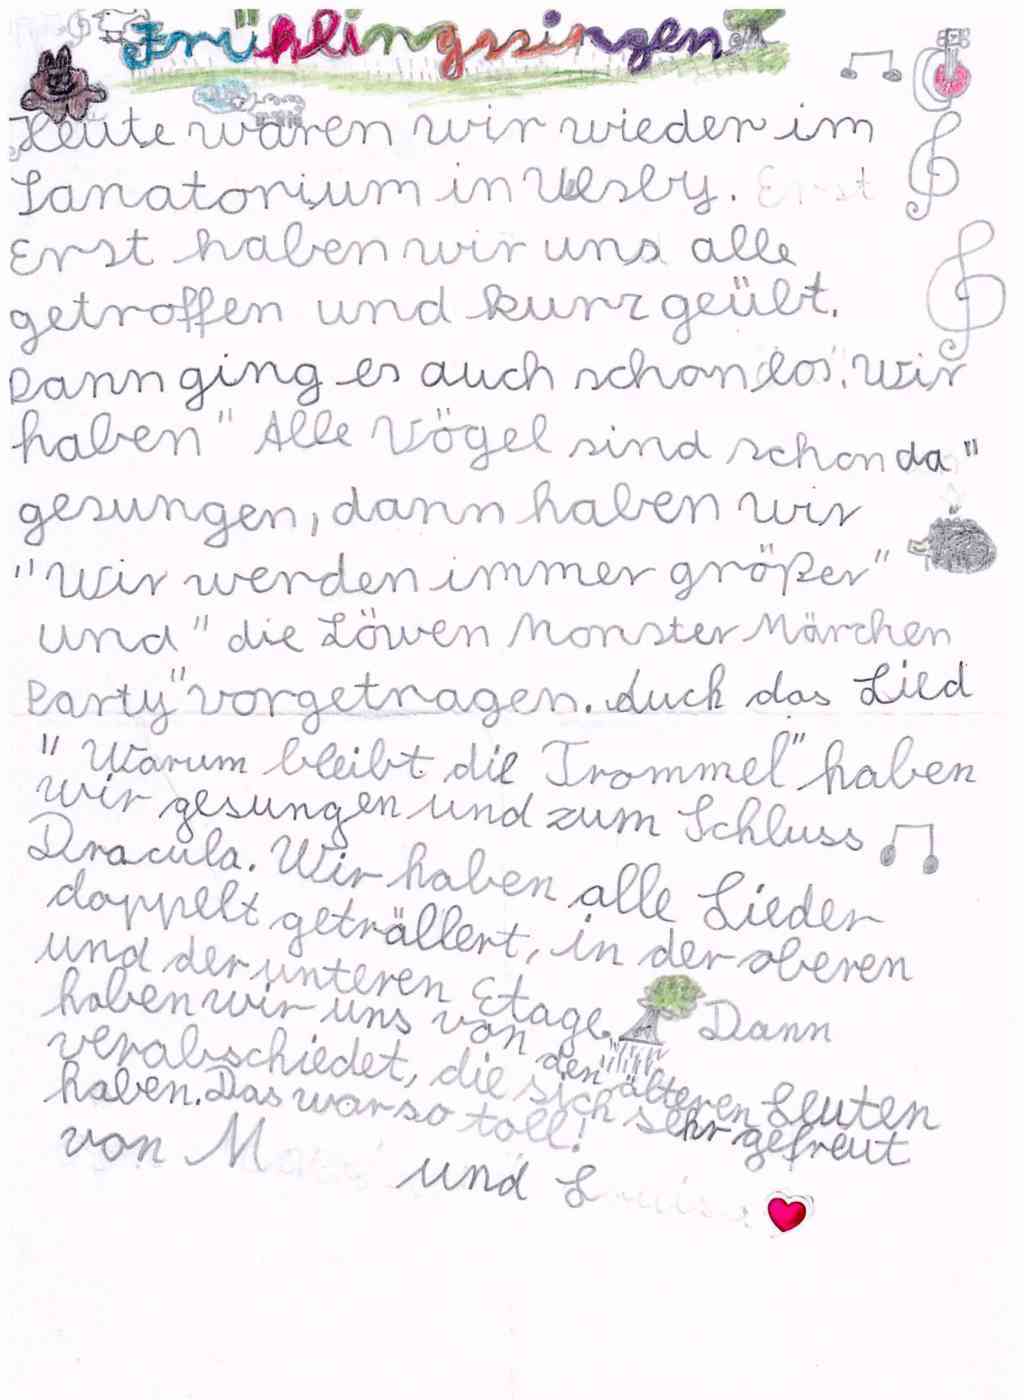 Frühlingssingen
Heute waren wir wieder im
Sanatorium in Ulsby. Erst
Erst haben wir uns alle
getroffen und kurz geübt.
Dann ging es auch schon los. Wir
haben "Alle Vögel sind schon da"
gesungen, dann haben wir
"Wir werden immer größer"
und "die Löwen Monster Märchen
Party" vorgetragen. Auch das Lied
"Warum bleibt die Trommel" haben
wir gesungen und zum Schluss
Dracula. Wir haben alle Lieder
doppelt geträllert, in der oberen
und der unteren Etage. Dann
haben wir uns von den älteren Leuten
verabschiedet, die sich sehr gefreut
haben. Das war so toll!
von M
und L